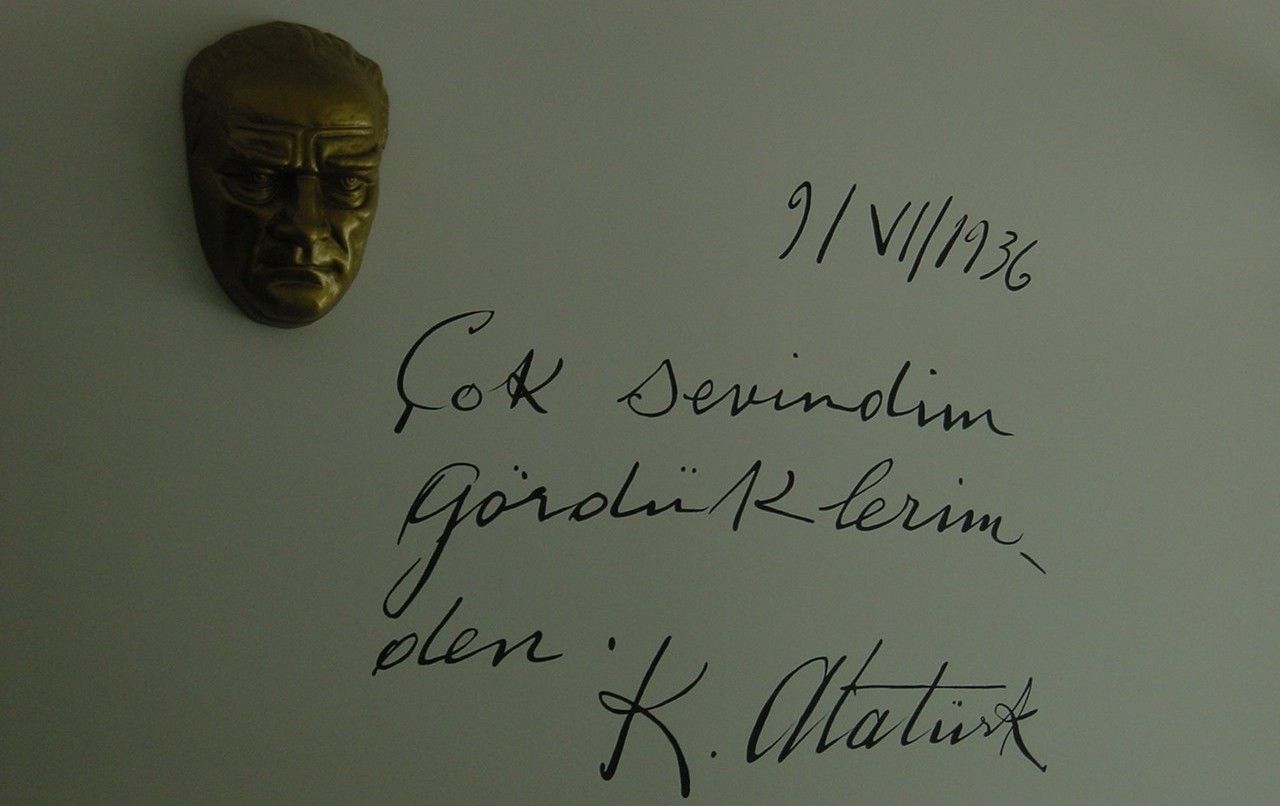 9/VII/1936
Çok sevindim
gördüklerim-
den.
K. Atatürk